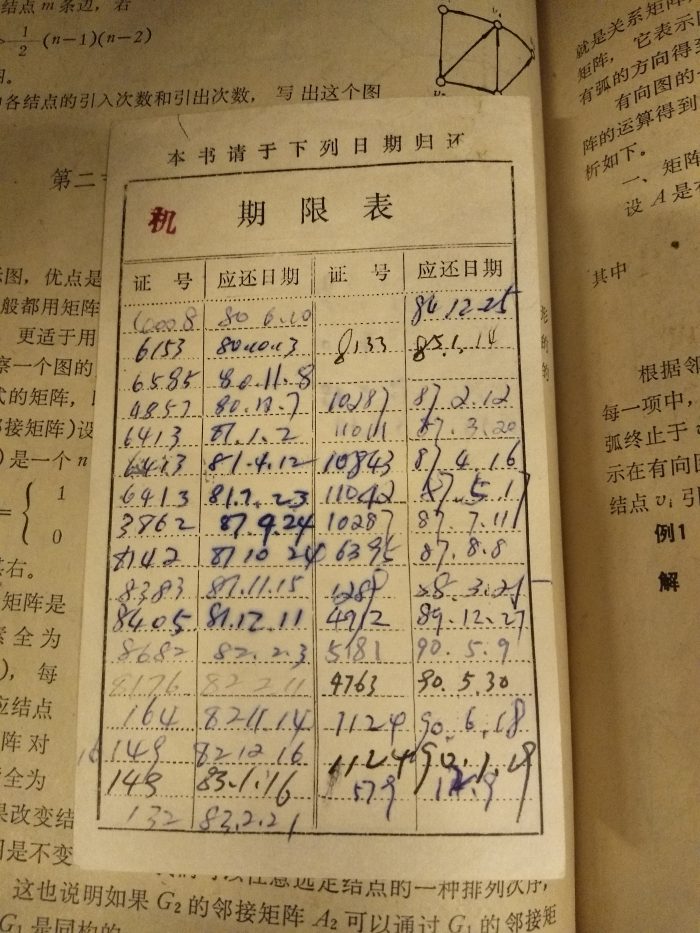 结点 m 条边，若
> 1/2 (n-1)(n-2)
各结点的引入次数和引出次数，写出这个图
本书请于下列日期归还
第二
机 期限表
证号 应还日期 证号 应还日期
10008 80.6.10 84.12.25
6153 80.10.13 8133 85.1.14
6585 80.11.8
4857 80.12.7 10287 87.2.12
6413 81.1.2 11011 87.3.20
6413 81.4.12 10843 87.4.16
6413 81.7.23 11042 87.5.17
3862 81.9.24 10287 87.7.11
8142 81.10.24 6395 87.8.8
8383 81.11.15 1289 88.3.25
8405 81.12.11 4912 89.12.27
8682 82.2.3 5181 90.5.9
8176 82.2.11 4763 90.5.30
164 82.11.14 1124 90.6.18
149 82.12.16 1124 90.1.19
149 83.1.16 579
132 83.2.21
示图，优点是
般都用矩阵
更适于用
察一个图的
式的矩阵，
邻接矩阵)设
) 是一个 n
= { 1
0
其右。
矩阵是
素全为
), 每
应结点
阵对
全为
果改变结
但是不变
选定结点的一种排列次序，
这也说明如果 G₂ 的邻接矩阵 A₂ 可以通过 G₁ 的邻接矩
G₁ 是同构的
就是关系矩阵，
矩阵，它表示
有弧的方向得到
有向图的
阵的运算得到
析如下。
一、矩阵
设 A 是
其中
根据邻
每一项中，
弧终止于
示在有向图
结点 vᵢ 引
例1
解